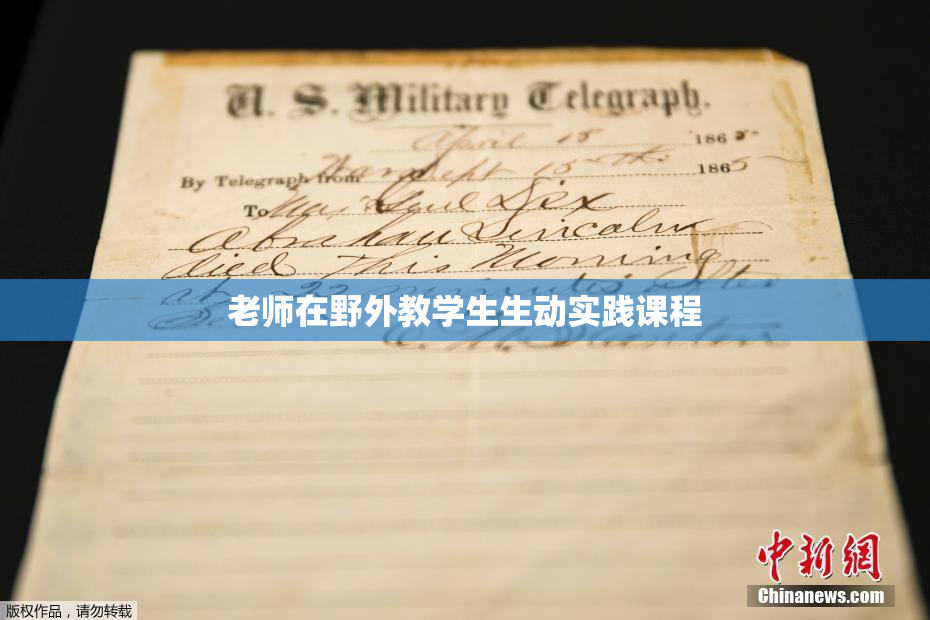 U. S. Military Telegraph.
April 15 1865
By Telegraph from Wash Dept 15th 1865
To Maj Genl Dix
Abraham Lincoln
died This Morning
at 22 minutes after
老师在野外教学生生动实践课程
中新网
Chinanews.com
版权作品，请勿转载